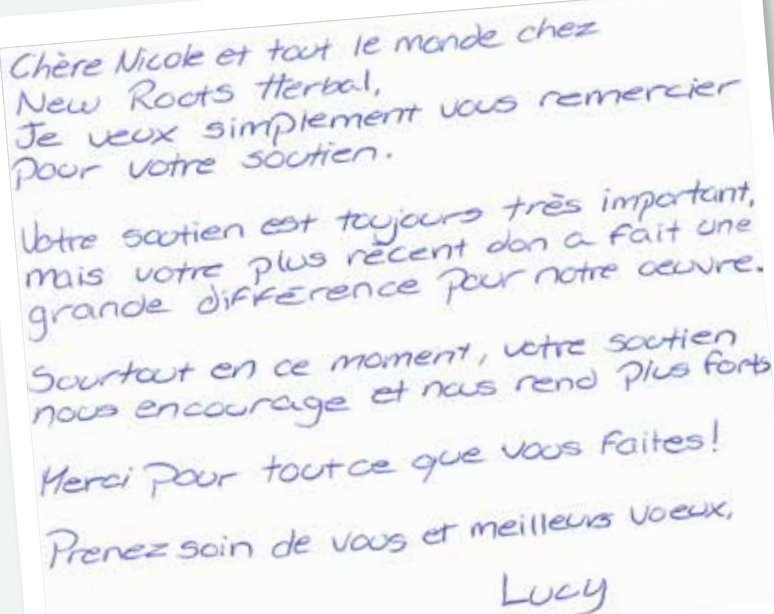 Chère Nicole et tout le monde chez
New Roots Herbal,
Je veux simplement vous remercier
pour votre soutien.
Votre soutien est toujours très important,
mais votre plus récent don a fait une
grande différence pour notre oeuvre.
Sourtout en ce moment, votre soutien
nous encourage et nous rend plus forts
Merci pour tout ce que vous faites!
Prenez soin de vous et meilleurs voeux,
Lucy